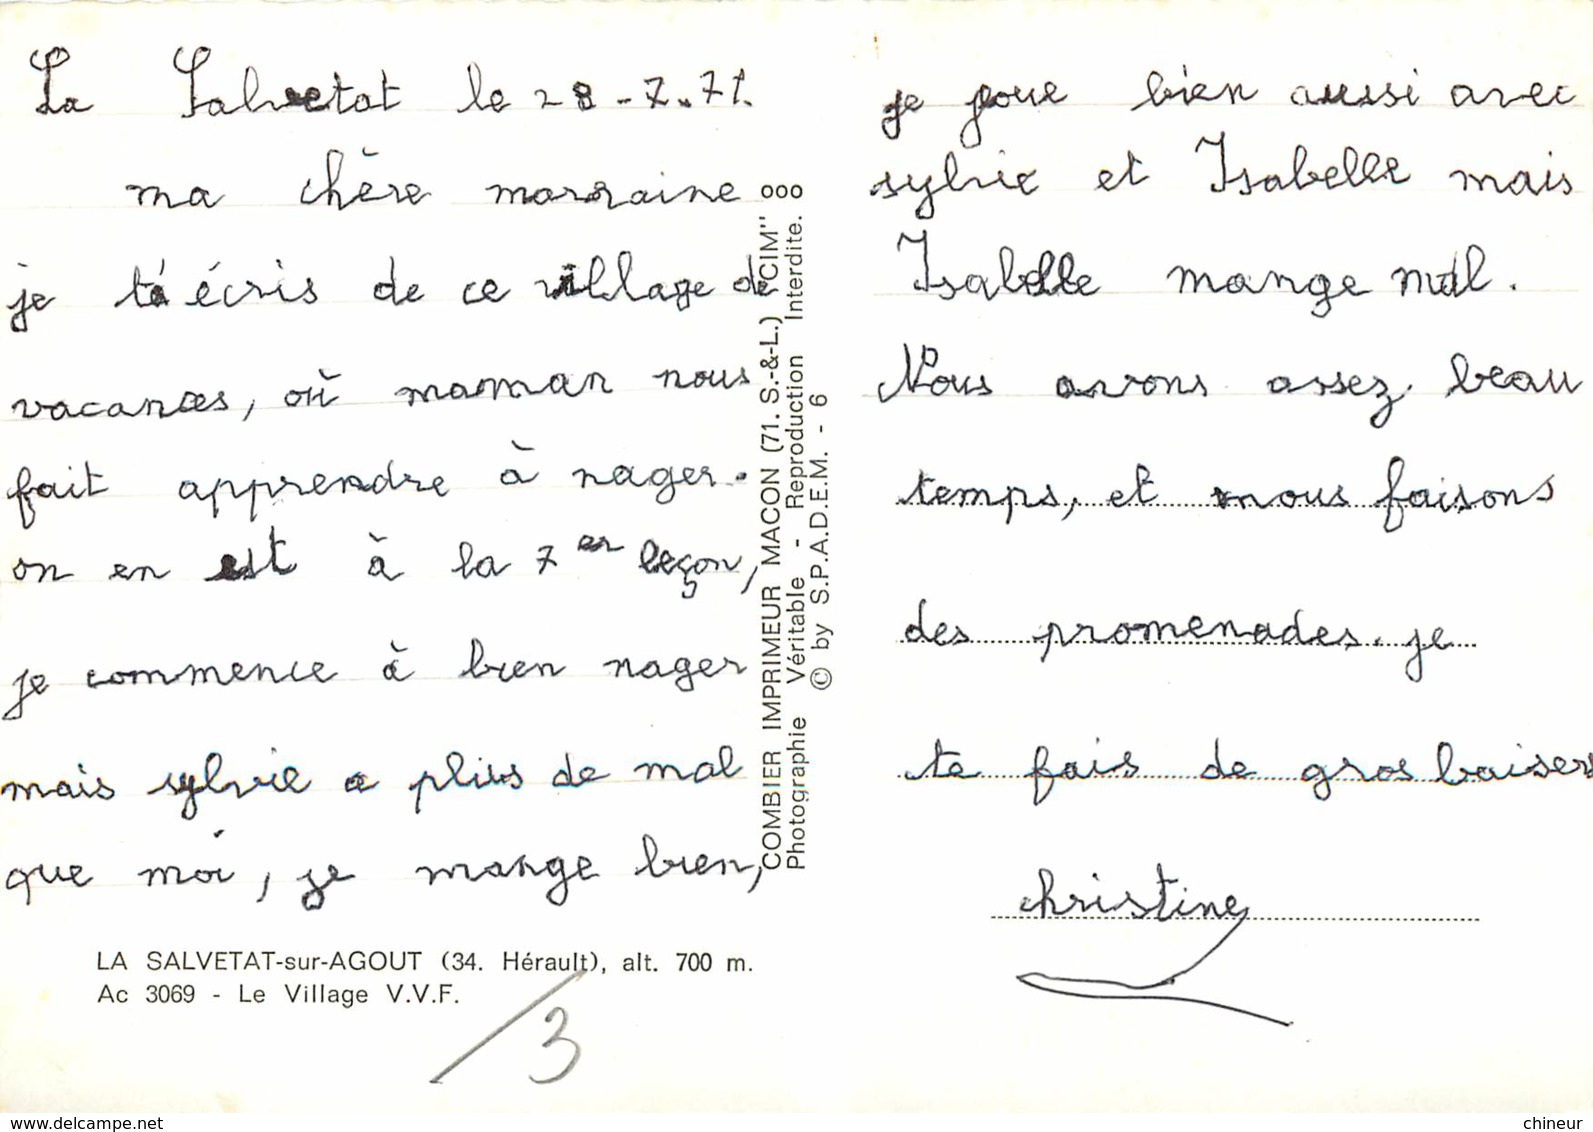 La Salvetat le 28-7.71.
ma chère marraine
je t'écris de ce village de
vacances, où maman nous
fait apprendre à nager.
on en est à la 7er leçon,
je commence à bien nager
mais sylvie a plus de mal
que moi, je mange bien,
LA SALVETAT-sur-AGOUT (34. Hérault), alt. 700 m.
Ac 3069 - Le Village V.V.F.
/3
COMBIER IMPRIMEUR MACON (71. S.-&-L.) "CIM"
Photographie Véritable - Reproduction Interdite.
© by S.P.A.D.E.M. - 6
ooo
je joue bien aussi avec
sylvie et Isabelle mais
Isabelle mange mal.
Nous avons assez beau
temps, et nous faisons
des promenades. je
te fais de gros baisers
christine
www.delcampe.net
chineur